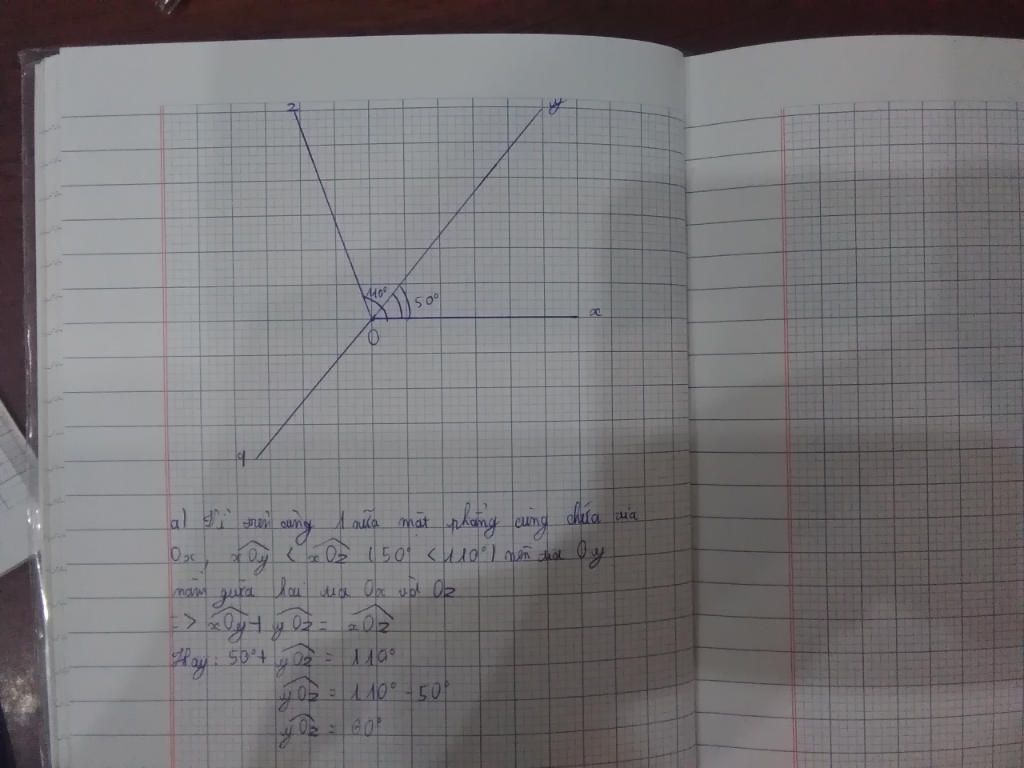 z
y
110°
50°
x
O
q
a) Vì trên cùng 1 nửa mặt phẳng cùng chứa tia
Ox, xOy < xOz (50° < 110°) nên tia Oy
nằm giữa hai tia Ox và Oz
=> xOy + yOz = xOz
Hay: 50° + yOz = 110°
yOz = 110° - 50°
yOz = 60°